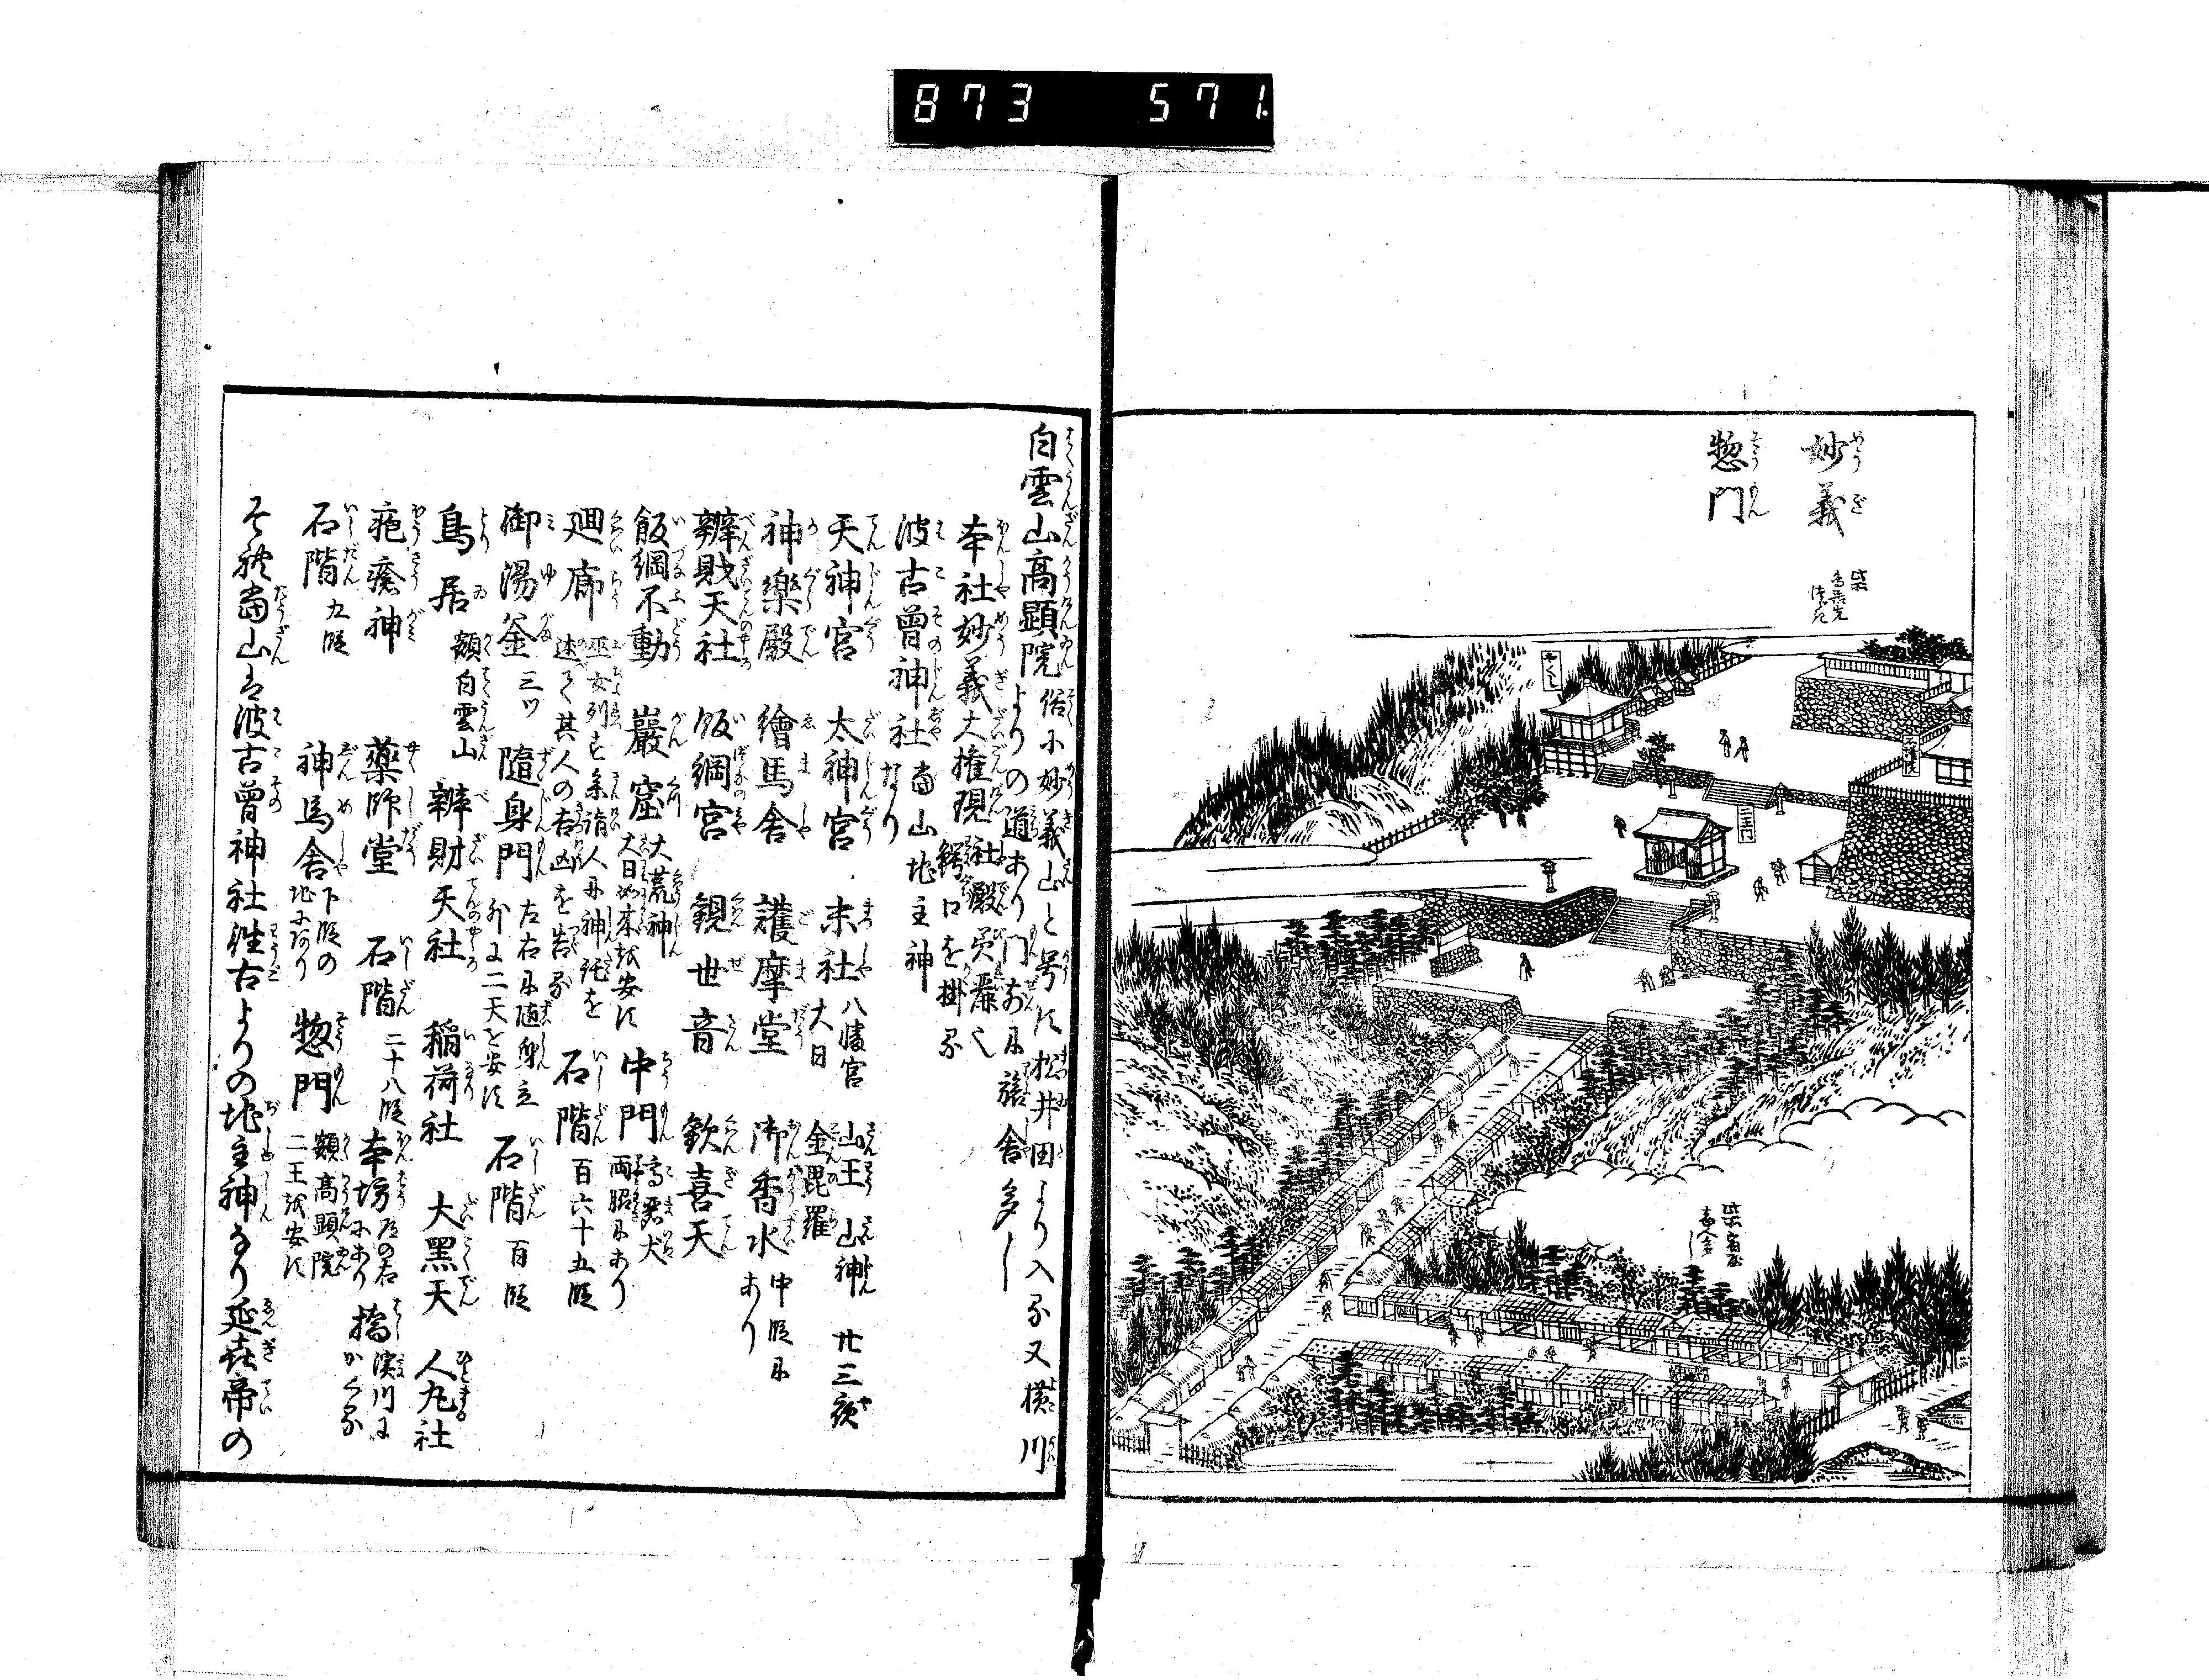 873 571
妙義
惣門
二王門
白雲山高顕院 俗に妙義山と号す松井田より入る又横川
よりの道あり門前に旅舎多し
本社妙義大権現 社殿美麗也
鰐口を掛る
波古曽神社 当山地主神
なり
天神宮 太神宮 末社 八幡宮 山王 山神 廿三夜
大日 金毘羅
神楽殿 絵馬舎 護摩堂 御香水 中段に
あり
辨財天社 飯綱宮 観世音 歓喜天
飯綱不動 巌窟 大荒神
大日如来を安す 中門 高麗犬
両脇にあり
廻廊 巫女列す参詣人に神託を
述て其人の吉凶を告る 石階 百六十五段
御湯釜 三ツ 随身門 左右に随身立
外に二天を安す 石階 百段
鳥居 額白雲山 辨財天社 稲荷社 大黒天 人丸社
疱瘡神 薬師堂 石階 二十八段 本坊 道の右
にあり 橋 溪川に
かくる
石階 九段 神馬舎 下段の
地にあり 惣門 額高顕院
二王を安す
そも当山は波古曽神社往古よりの地主神なり延喜帝の